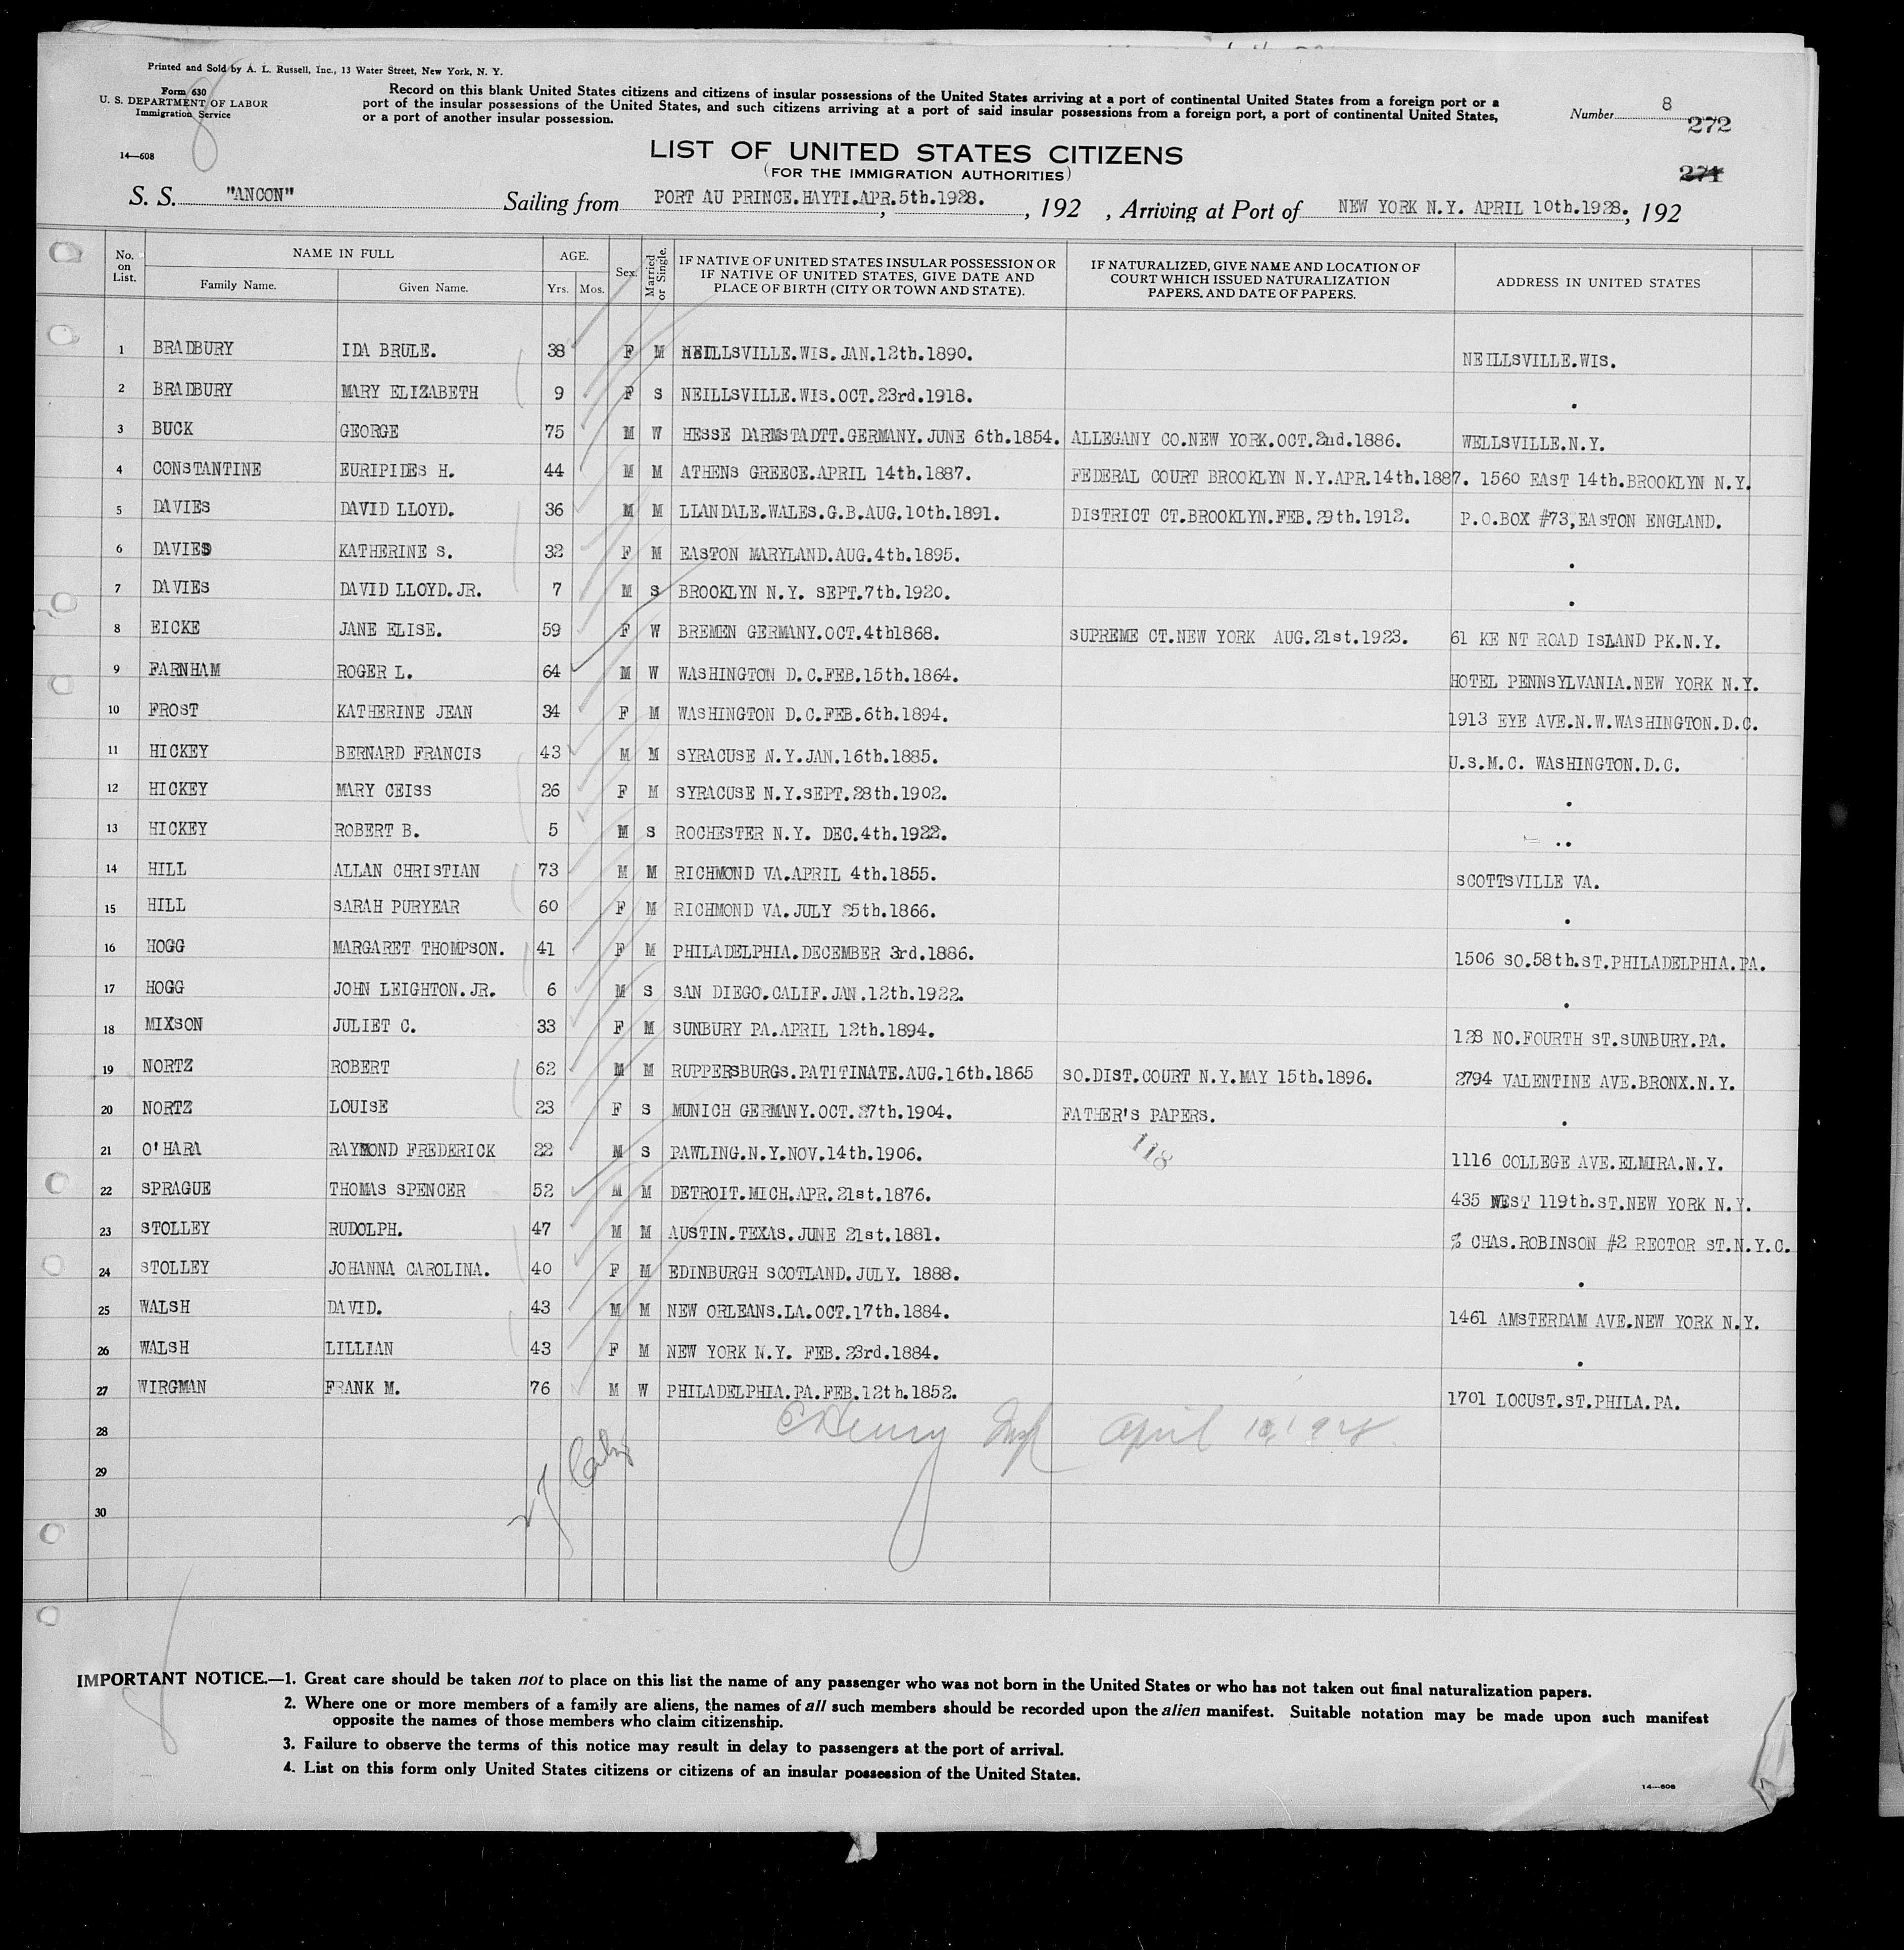 Printed and Sold by A. L. Russell, Inc., 13 Water Street, New York, N. Y.
Form 630
U. S. DEPARTMENT OF LABOR
Immigration Service
14—608
8
Record on this blank United States citizens and citizens of insular possessions of the United States arriving at a port of continental United States from a foreign port or a
port of the insular possessions of the United States, and such citizens arriving at a port of said insular possessions from a foreign port, a port of continental United States,
or a port of another insular possession.
Number 8
272
271
LIST OF UNITED STATES CITIZENS
(FOR THE IMMIGRATION AUTHORITIES)
S. S. "ANCON" Sailing from PORT AU PRINCE.HAYTI.APR.5th.1928. , , 192 , Arriving at Port of NEW YORK N.Y. APRIL 10th.1928. , 192
No. on List. NAME IN FULL Family Name. Given Name. AGE. Yrs. Mos. Sex. Married or Single. IF NATIVE OF UNITED STATES INSULAR POSSESSION OR IF NATIVE OF UNITED STATES, GIVE DATE AND PLACE OF BIRTH (CITY OR TOWN AND STATE). IF NATURALIZED, GIVE NAME AND LOCATION OF COURT WHICH ISSUED NATURALIZATION PAPERS, AND DATE OF PAPERS. ADDRESS IN UNITED STATES
1 BRADBURY IDA BRULE. 38 F M NEILLSVILLE.WIS.JAN.12th.1890. NEILLSVILLE.WIS.
2 BRADBURY MARY ELIZABETH 9 F S NEILLSVILLE.WIS.OCT.23rd.1918. .
3 BUCK GEORGE 75 M W HESSE DARMSTADTT.GERMANY.JUNE 6th.1854. ALLEGANY CO.NEW YORK.OCT.2nd.1886. WELLSVILLE.N.Y.
4 CONSTANTINE EURIPIDES H. 44 M M ATHENS GREECE.APRIL 14th.1887. FEDERAL COURT BROOKLYN N.Y.APR.14th.1887. 1560 EAST 14th.BROOKLYN N.Y.
5 DAVIES DAVID LLOYD. 36 M M LLANDALE.WALES.G.B.AUG.10th.1891. DISTRICT CT.BROOKLYN.FEB.29th.1912. P.O.BOX #73,EASTON ENGLAND.
6 DAVIES KATHERINE S. 32 F M EASTON MARYLAND.AUG.4th.1895. .
7 DAVIES DAVID LLOYD.JR. 7 M S BROOKLYN N.Y. SEPT.7th.1920. .
8 EICKE JANE ELISE. 59 F W BREMEN GERMANY.OCT.4th1868. SUPREME CT.NEW YORK AUG.21st.1923. 61 KE NT ROAD ISLAND PK.N.Y.
9 FARNHAM ROGER L. 64 M W WASHINGTON D.C.FEB.15th.1864. HOTEL PENNSYLVANIA.NEW YORK N.Y.
10 FROST KATHERINE JEAN 34 F M WASHINGTON D.C.FEB.6th.1894. 1913 EYE AVE.N.W.WASHINGTON.D.C.
11 HICKEY BERNARD FRANCIS 43 M M SYRACUSE N.Y.JAN.16th.1885. U.S.M.C. WASHINGTON.D.C.
12 HICKEY MARY CEISS 26 F M SYRACUSE N.Y.SEPT.28th.1902. .
13 HICKEY ROBERT B. 5 M S ROCHESTER N.Y. DEC.4th.1922. ..
14 HILL ALLAN CHRISTIAN 73 M M RICHMOND VA.APRIL 4th.1855. SCOTTSVILLE VA.
15 HILL SARAH PURYEAR 60 F M RICHMOND VA.JULY 25th.1866. .
16 HOGG MARGARET THOMPSON. 41 F M PHILADELPHIA.DECEMBER 3rd.1886. 1506 SO.58th.ST.PHILADELPHIA.PA.
17 HOGG JOHN LEIGHTON.JR. 6 M S SAN DIEGO.CALIF.JAN.12th.1922. .
18 MIXSON JULIET C. 33 F M SUNBURY PA.APRIL 12th.1894. 128 NO.FOURTH ST.SUNBURY.PA.
19 NORTZ ROBERT 62 M M RUPPERSBURGS.PATITINATE.AUG.16th.1865 SO.DIST.COURT N.Y.MAY 15th.1896. 2794 VALENTINE AVE.BRONX.N.Y.
20 NORTZ LOUISE 23 F S MUNICH GERMANY.OCT.27th.1904. FATHER'S PAPERS. .
118
21 O'HARA RAYMOND FREDERICK 22 M S PAWLING.N.Y.NOV.14th.1906. 1116 COLLEGE AVE.ELMIRA.N.Y.
22 SPRAGUE THOMAS SPENCER 52 M M DETROIT.MICH.APR.21st.1876. 435 WEST 119th.ST.NEW YORK N.Y.
23 STOLLEY RUDOLPH. 47 M M AUSTIN.TEXAS.JUNE 21st.1881. % CHAS.ROBINSON #2 RECTOR ST.N.Y.C.
24 STOLLEY JOHANNA CAROLINA. 40 F M EDINBURGH SCOTLAND.JULY. 1888. .
25 WALSH DAVID. 43 M M NEW ORLEANS.LA.OCT.17th.1884. 1461 AMSTERDAM AVE.NEW YORK N.Y.
26 WALSH LILLIAN 43 F M NEW YORK N.Y. FEB.23rd.1884. .
27 WIRGMAN FRANK M. 76 M W PHILADELPHIA.PA.FEB.12th.1852. 1701 LOCUST.ST.PHILA.PA.
28 April 10, 1928
29
30
IMPORTANT NOTICE.—1. Great care should be taken not to place on this list the name of any passenger who was not born in the United States or who has not taken out final naturalization papers.
2. Where one or more members of a family are aliens, the names of all such members should be recorded upon the alien manifest. Suitable notation may be made upon such manifest
opposite the names of those members who claim citizenship.
3. Failure to observe the terms of this notice may result in delay to passengers at the port of arrival.
4. List on this form only United States citizens or citizens of an insular possession of the United States.
14—608
8